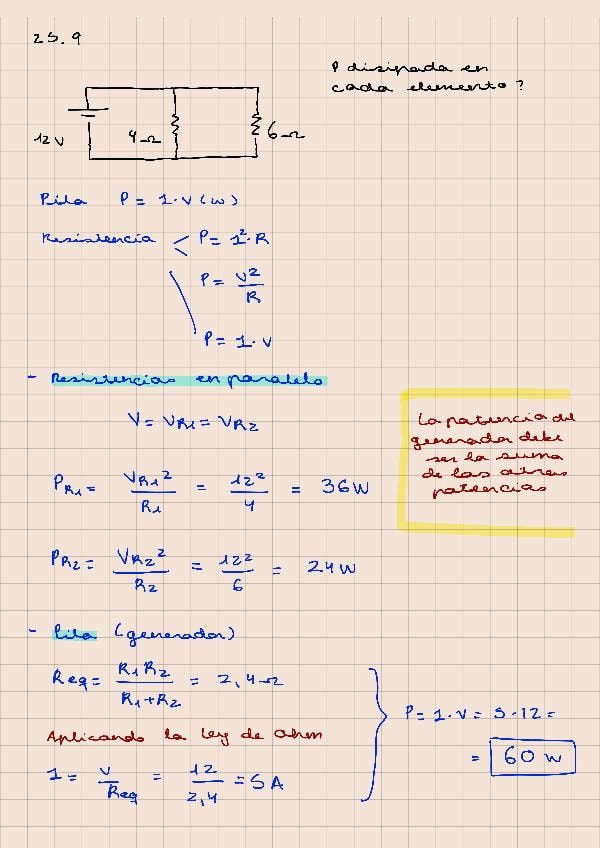 25.9
P disipada en
cada elemento?
12V
4Ω
6Ω
Pila P = I·V (W)
Resistencia < P = I²·R
P = V²/R
P = I·V
- Resistencias en paralelo
V = VR1 = VR2
PR1 = VR1²/R1 = 12²/4 = 36W
La potencia del
generador debe
ser la suma
de las otras
potencias
PR2 = VR2²/R2 = 12²/6 = 24W
- Pila (generador)
Req = R1R2/R1+R2 = 2,4Ω
Aplicando la ley de ohm
I = V/Req = 12/2,4 = 5A
P = I·V = 5·12 =
= 60 W